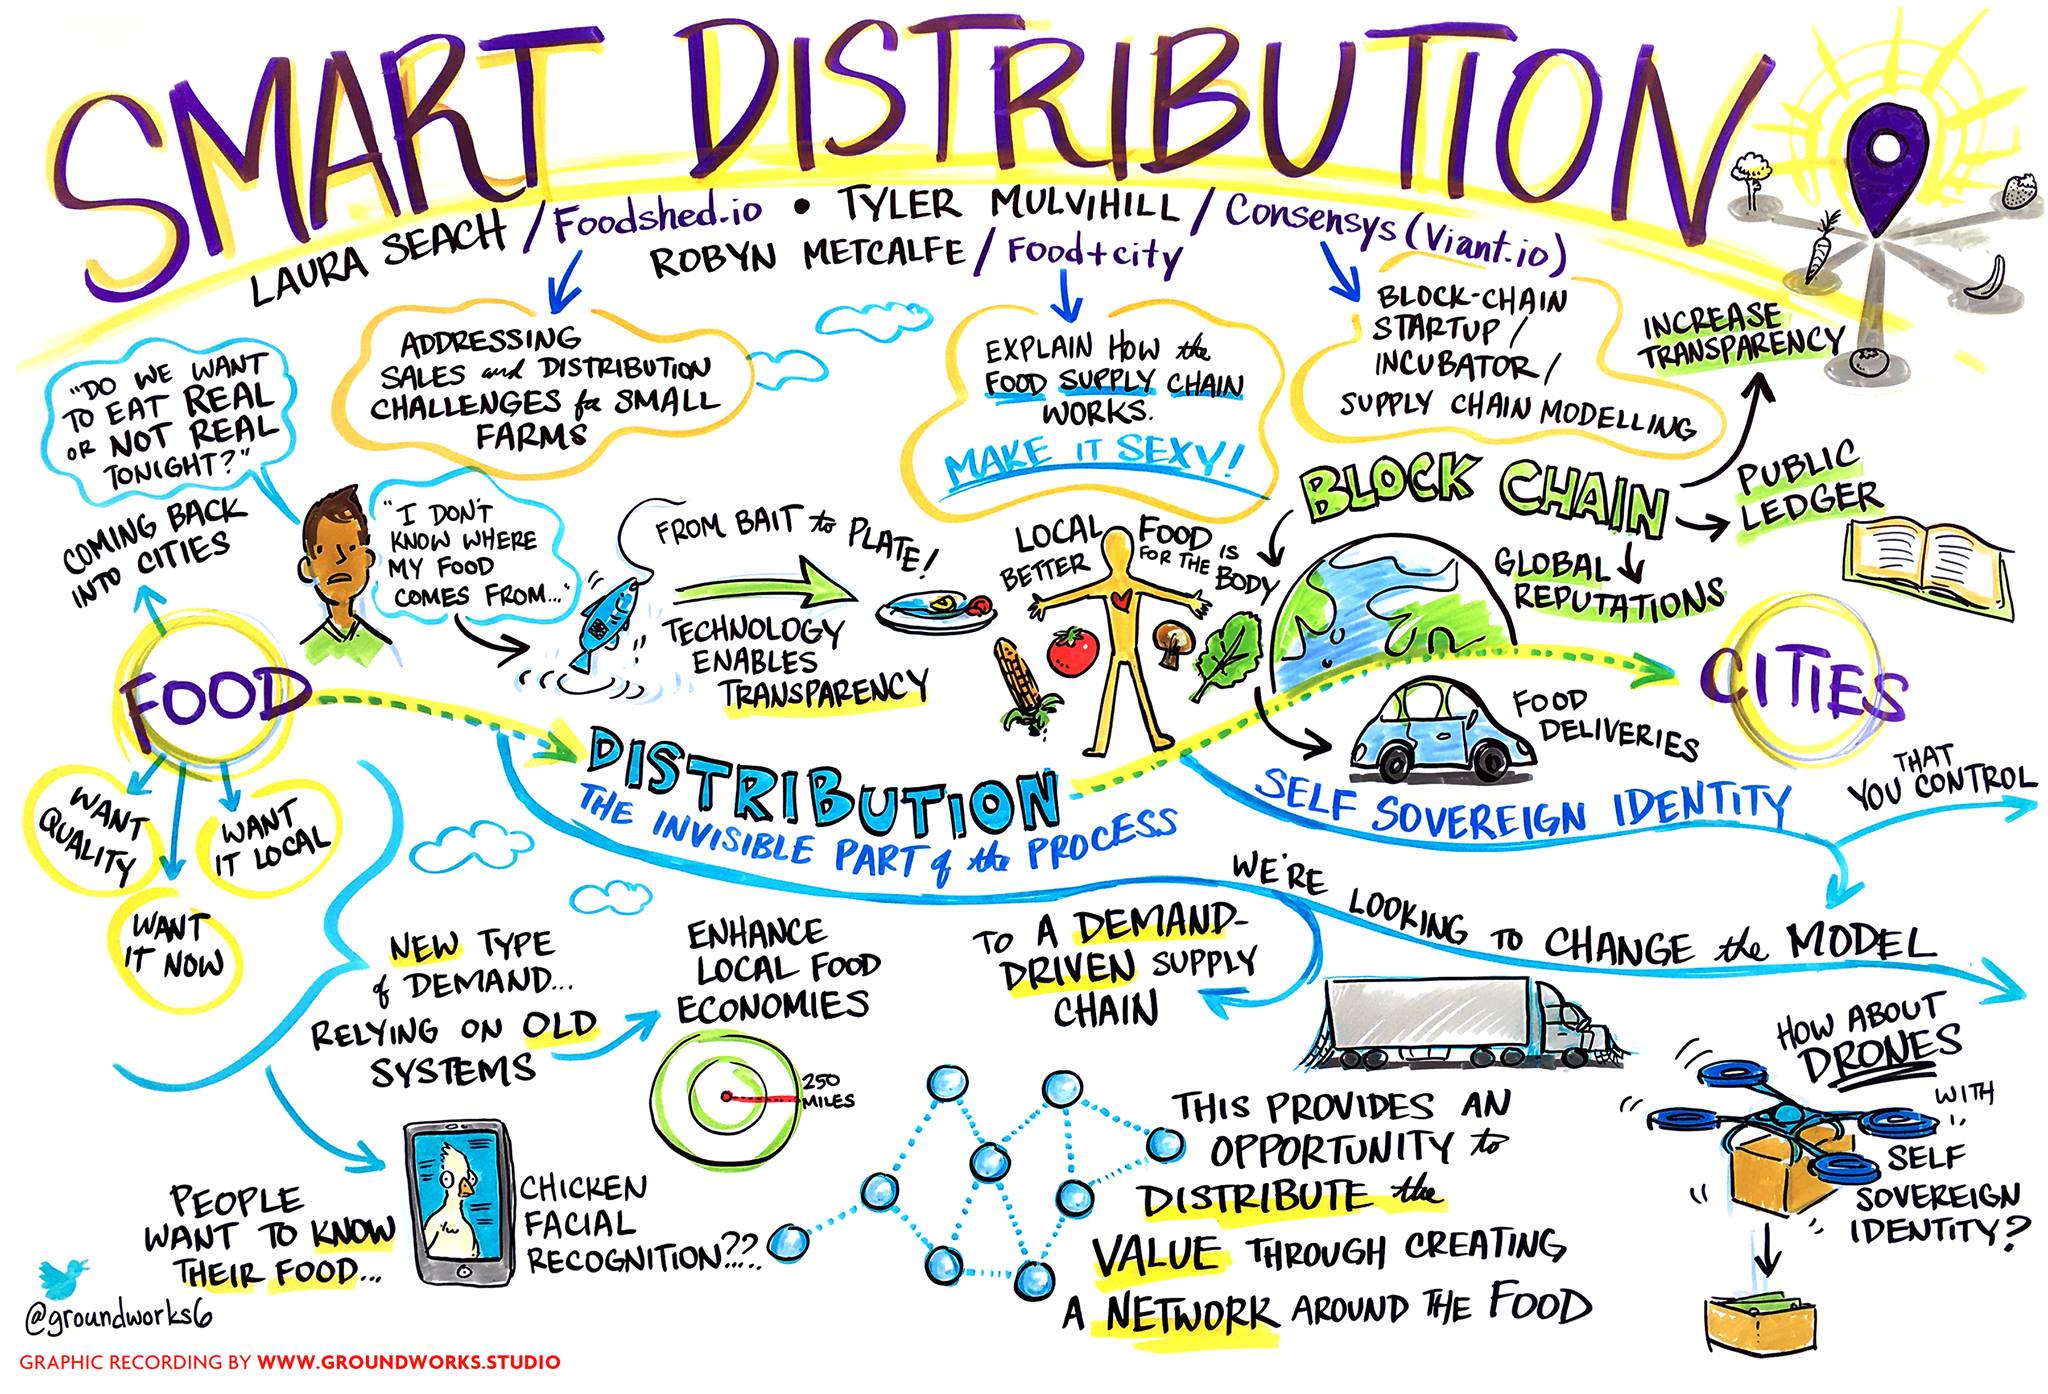 SMART DISTRIBUTION
LAURA SEACH / Foodshed.io • TYLER MULVIHILL / Consensys (Viant.io)
ROBYN METCALFE / Food+city
ADDRESSING
SALES and DISTRIBUTION
CHALLENGES for SMALL
FARMS
EXPLAIN HOW the
FOOD SUPPLY CHAIN
WORKS.
MAKE IT SEXY!
BLOCK-CHAIN
STARTUP /
INCUBATOR /
SUPPLY CHAIN MODELLING
INCREASE
TRANSPARENCY
"DO WE WANT
TO EAT REAL
OR NOT REAL
TONIGHT?"
COMING BACK
INTO CITIES
"I DON'T
KNOW WHERE
MY FOOD
COMES FROM..."
FROM BAIT to PLATE!
TECHNOLOGY
ENABLES
TRANSPARENCY
LOCAL FOOD IS
BETTER FOR THE BODY
BLOCK CHAIN
PUBLIC
LEDGER
GLOBAL
REPUTATIONS
FOOD
WANT
QUALITY
WANT
IT LOCAL
WANT
IT NOW
DISTRIBUTION
THE INVISIBLE PART of the PROCESS
FOOD
DELIVERIES
CITIES
SELF SOVEREIGN IDENTITY
THAT
YOU CONTROL
WE'RE LOOKING TO CHANGE the MODEL
TO A DEMAND-
DRIVEN SUPPLY
CHAIN
NEW TYPE
of DEMAND...
RELYING ON OLD
SYSTEMS
ENHANCE
LOCAL FOOD
ECONOMIES
250
MILES
PEOPLE
WANT TO KNOW
THEIR FOOD...
CHICKEN
FACIAL
RECOGNITION??
THIS PROVIDES AN
OPPORTUNITY to
DISTRIBUTE the
VALUE THROUGH CREATING
A NETWORK AROUND THE FOOD
HOW ABOUT
DRONES
WITH
SELF
SOVEREIGN
IDENTITY?
@groundworks6
GRAPHIC RECORDING BY WWW.GROUNDWORKS.STUDIO